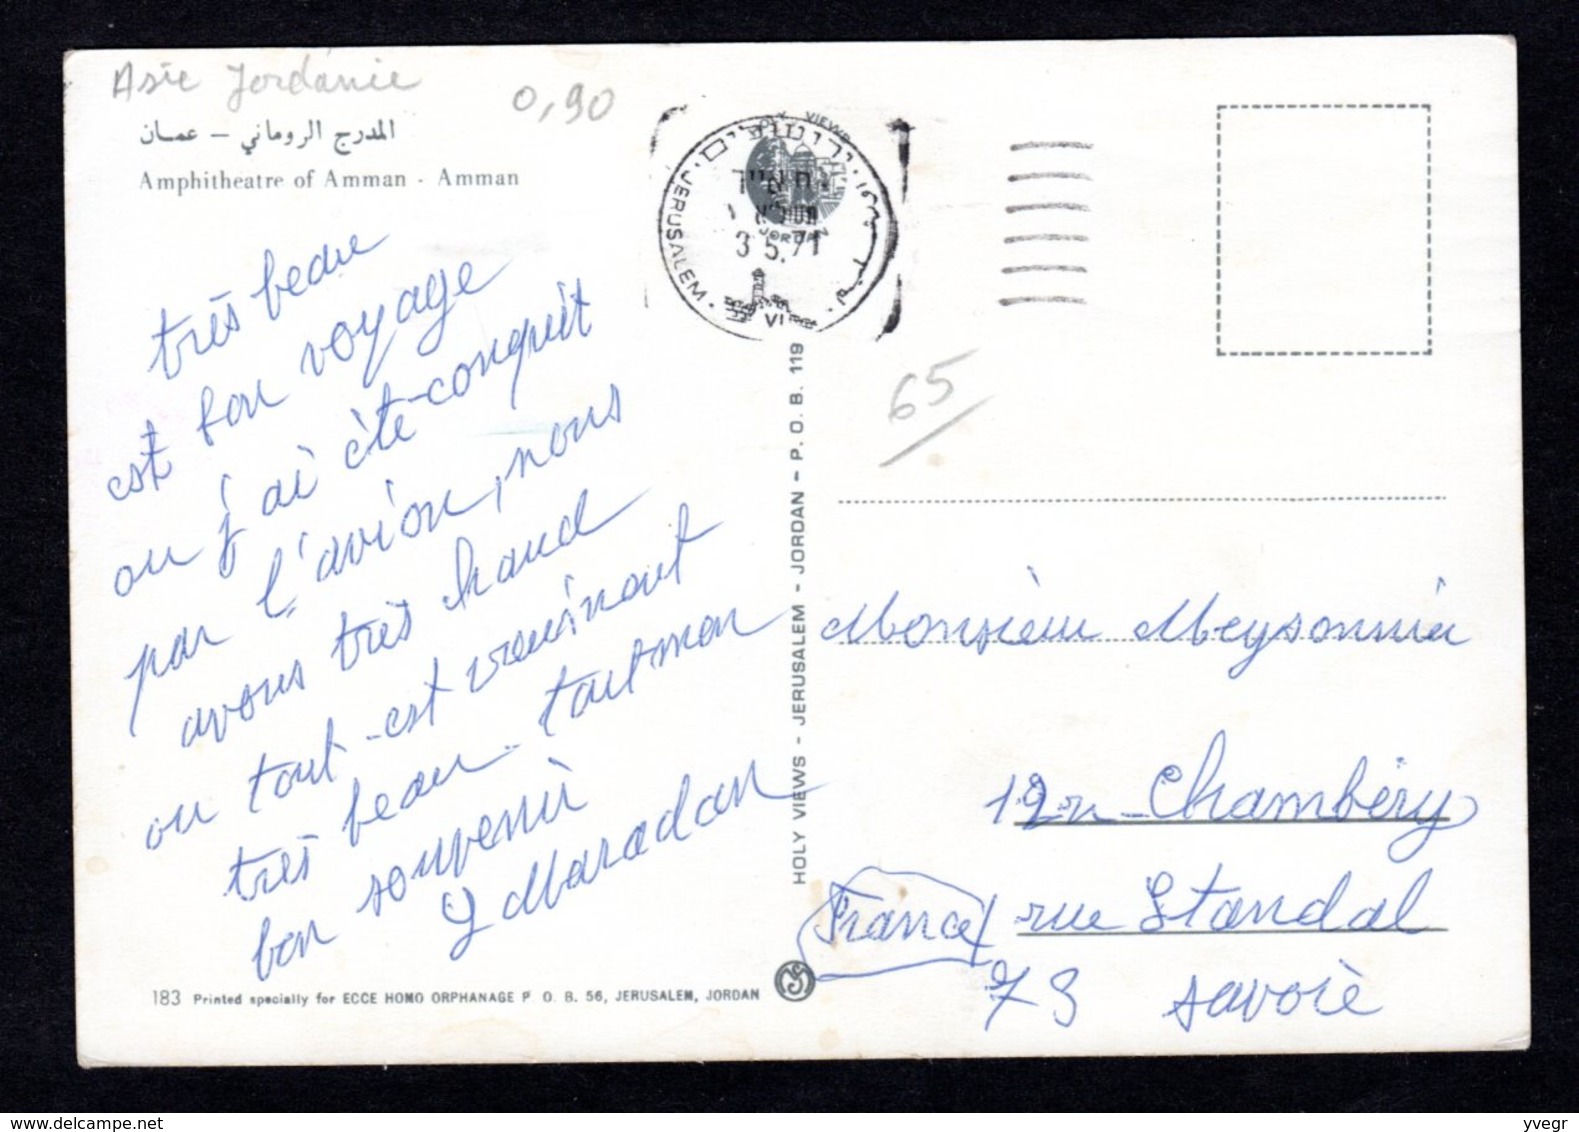 Asie Jordanie
0,90
المدرج الروماني — عمـان
Amphitheatre of Amman - Amman
très beau
est bon voyage
ou j'ai ète conquit
par l'avion, nous
avons très chaud
ou tout est vraimant
très beau tout mon
bon souvenir
Maradan
183 Printed specially for ECCE HOMO ORPHANAGE P. O. B. 56, JERUSALEM, JORDAN
HOLY VIEWS - JERUSALEM - JORDAN - P. O. B. 119
HOLY VIEWS
JORDAN
ירושלים
JERUSALEM
3 5.71
VI
65
Monsieur Meysonnier
12 Chambéry
rue Standal
France
73 Savoie
yvegr